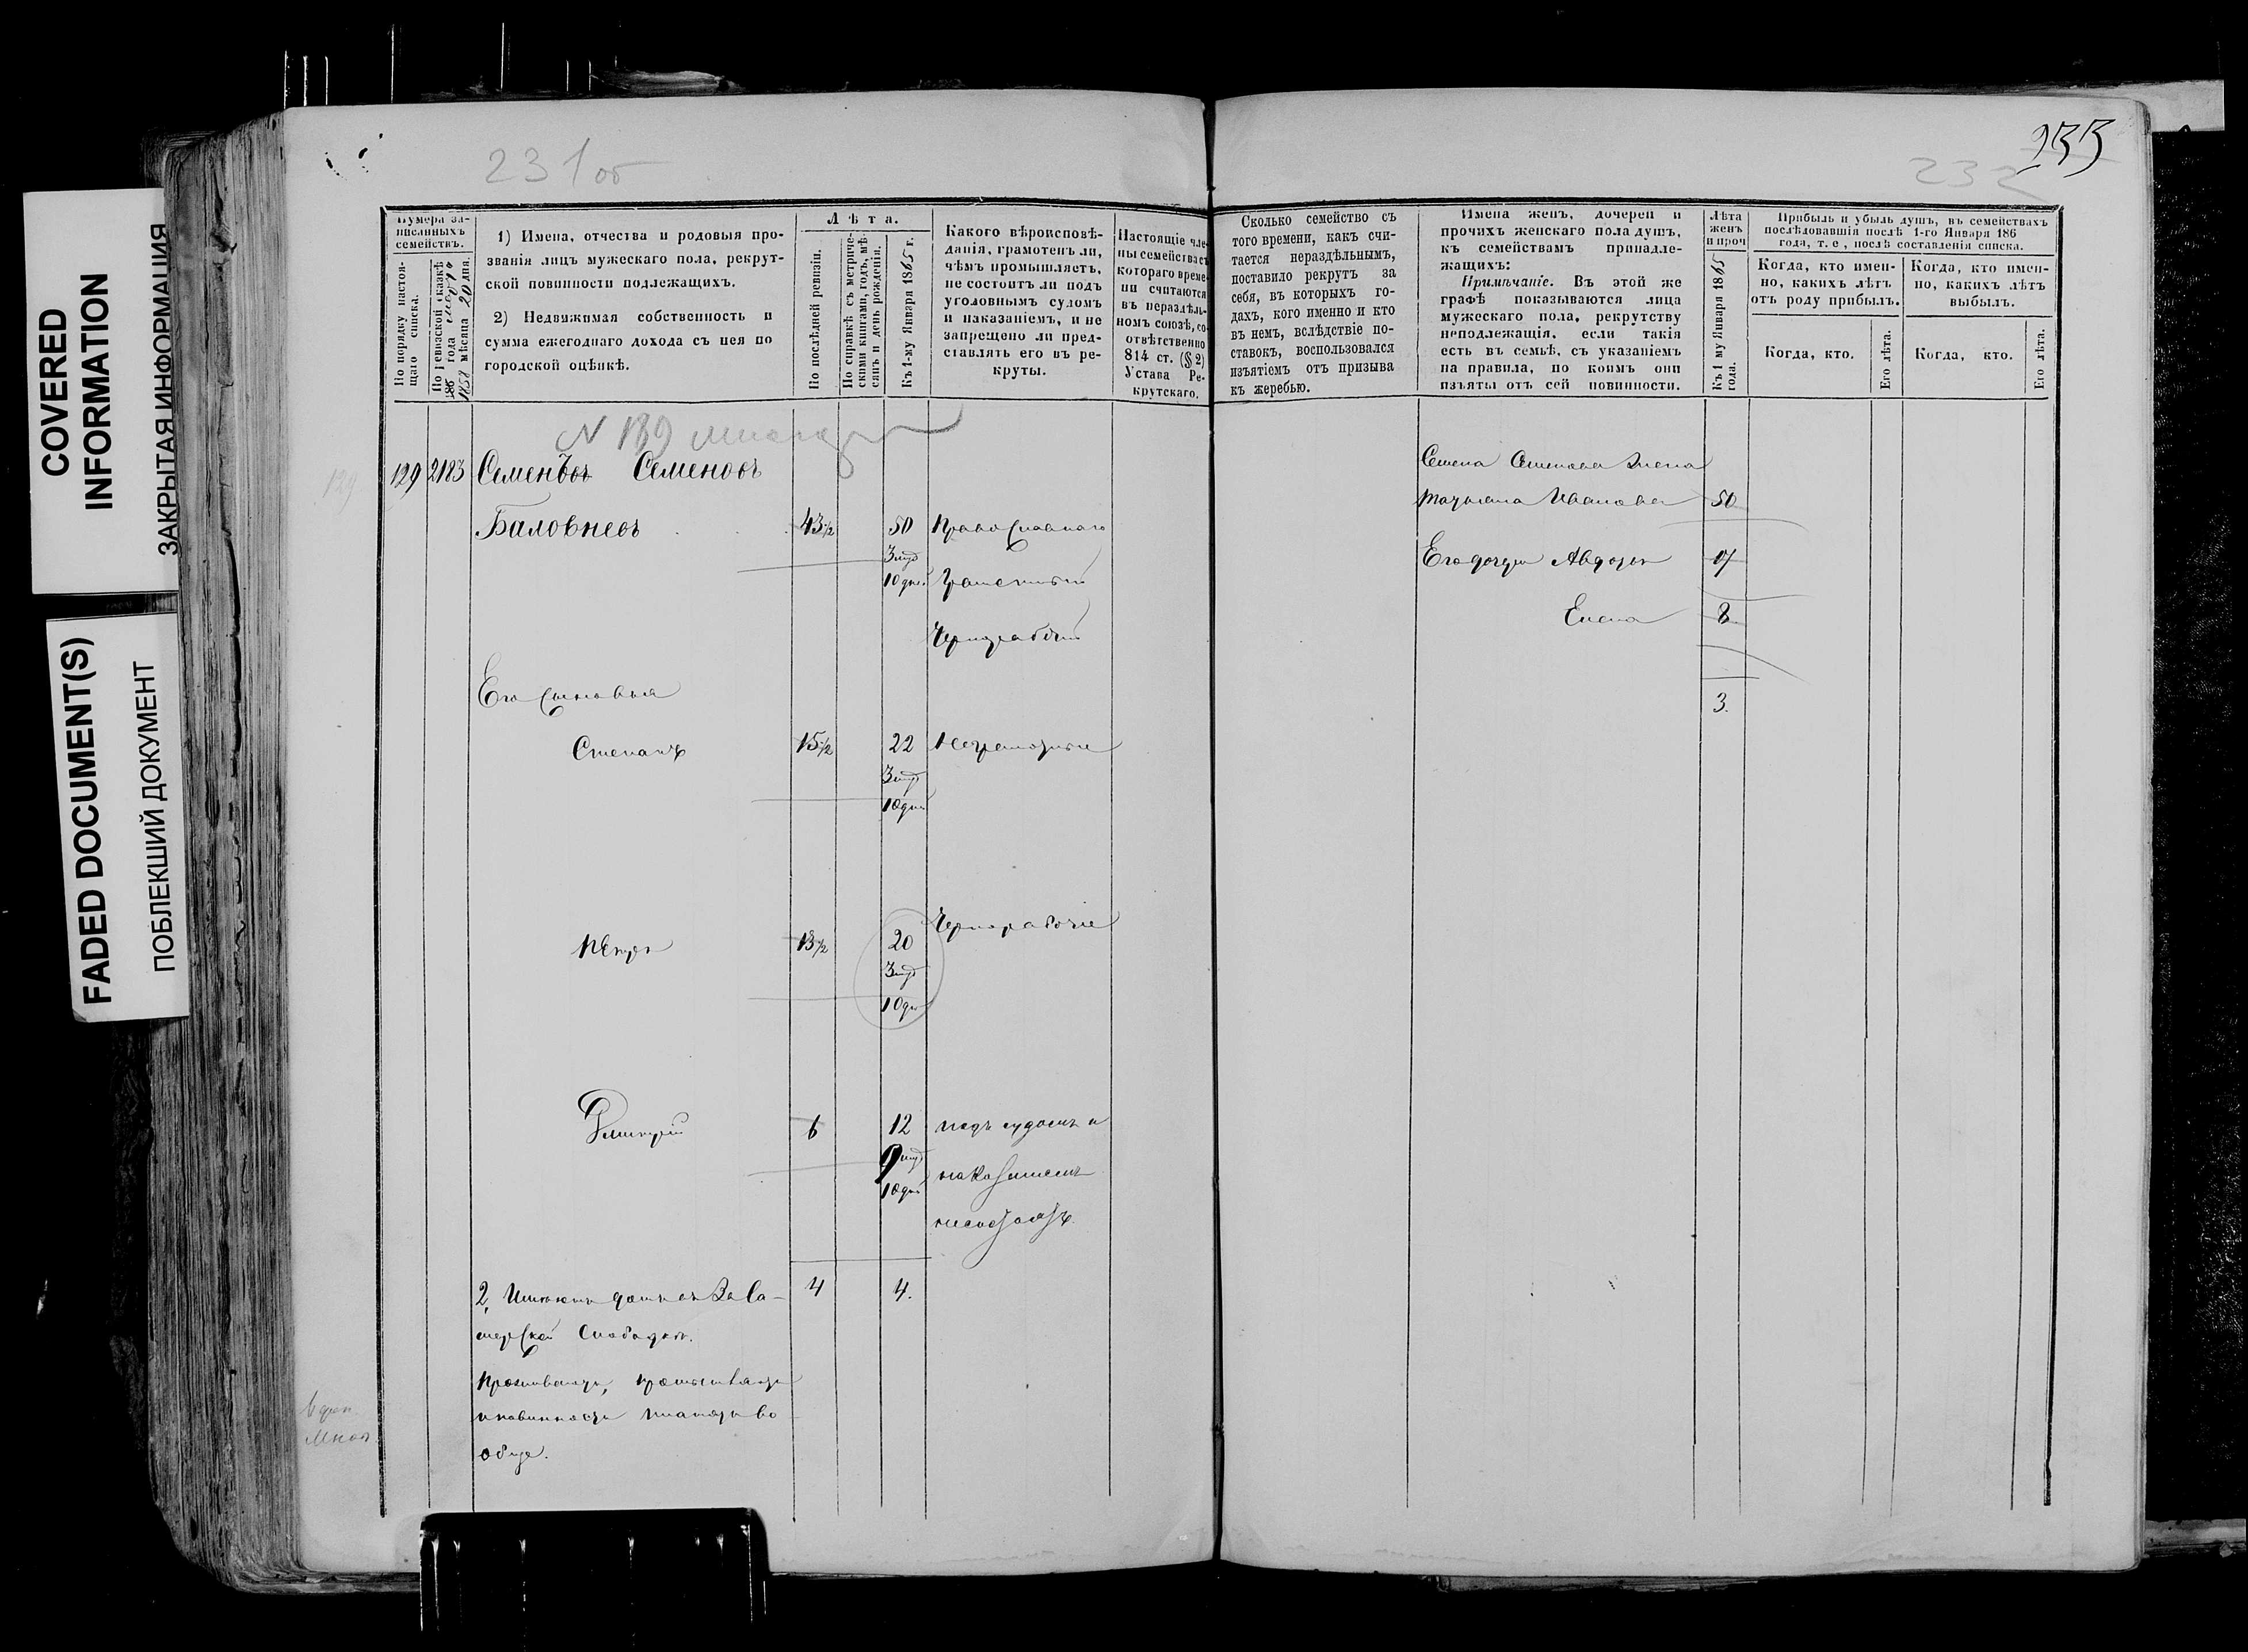 COVERED
INFORMATION
ЗАКРЫТАЯ ИНФОРМАЦИЯ
FADED DOCUMENT(S)
ПОБЛЕКШИЙ ДОКУМЕНТ
231об
Нумера за-
писанныхъ
семействъ.
По порядку настоя-
щаго списка.
По ревизской сказкѣ
года
1858 мѣсяца 20 дня.
1) Имена, отчества и родовыя про-
званія лицъ мужескаго пола, рекрут-
ской повинности подлежащихъ.
2) Недвижимая собственность и
сумма ежегоднаго дохода съ нея по
городской оцѣнкѣ.
Лѣта.
По послѣдней ревизіи.
По справкѣ съ метриче-
скими книгами, годъ, мѣ-
сяцъ и день рожденія.
Къ 1-му Января 1865 г.
Какого вѣроисповѣ-
данія, грамотенъ ли,
чѣмъ промышляетъ,
не состоитъ ли подъ
уголовнымъ судомъ
и наказаніемъ, и не
запрещено ли пред-
ставлять его въ ре-
круты.
Настоящіе чле-
ны семейства съ
котораго време-
ни считаются
въ нераздѣль-
номъ союзѣ, со-
отвѣтственно
814 ст. (§ 2)
Устава Ре-
крутскаго.
N 189
129
129 2183 Семенъ Семеновъ
Баловневъ 43½ 50 Православнаго
3 мѣс
10 дней Грамотный
Чернорабочій
Его сыновья
Степанъ 15½ 22 Неграмотные
3 мѣс
10 дней
Петръ 13½ 20 Чернорабочіе
3 мѣс
10 дн
Дмитрій 6 12 подъ судомъ и
9 мѣс наказаніемъ
10 дней
несостоятъ
4 4.
2, Имѣютъ домъ въ
Слободѣ.
Проживаютъ,
и повинности платятъ во
обще.
233
232
Сколько семейство съ
того времени, какъ счи-
тается нераздѣльнымъ,
поставило рекрутъ за
себя, въ которыхъ го-
дахъ, кого именно и кто
въ немъ, вслѣдствіе по-
ставокъ, воспользовался
изъятіемъ отъ призыва
къ жеребью.
Имена женъ, дочерей и
прочихъ женскаго пола душъ,
къ семействамъ принадле-
жащихъ:
Примѣчаніе. Въ этой же
графѣ показываются лица
мужескаго пола, рекрутству
неподлежащія, если такія
есть въ семьѣ, съ указаніемъ
на правила, по коимъ они
изъяты отъ сей повинности.
Лѣта
женъ
и проч
Къ 1 му Января 1865
года.
Прибыль и убыль душъ, въ семействахъ
послѣдовавшія послѣ 1-го Января 186
года, т. е., послѣ составленія списка.
Когда, кто имен-
но, какихъ лѣтъ
отъ роду прибылъ.
Когда, кто имен-
но, какихъ лѣтъ
выбылъ.
Когда, кто.
Его лѣта.
Когда, кто.
Его лѣта.
Семена Семенова жена
Татьяна Иванова 50
Его дочери Авдотья 17
Елена 8
3.